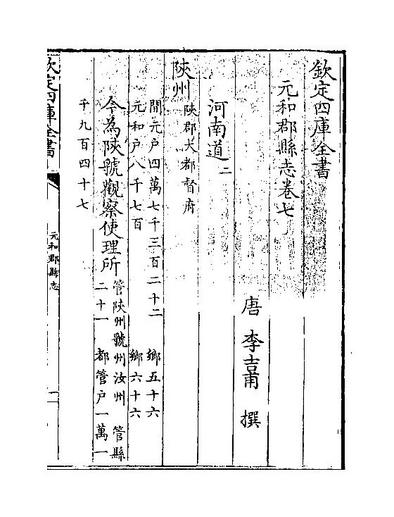 欽定四庫全書
元和郡縣志卷七
唐 李吉甫 撰
河南道二
陜州 陜郡大都督府
開元戶四萬七千三百二十二 鄉五十六
元和戶八千七百 鄉六十六
今為陜虢觀察使理所 管陜州虢州汝州 管縣
二十一 都管戶一萬一
千九百四十七
欽定四庫全書
元和郡縣志
一